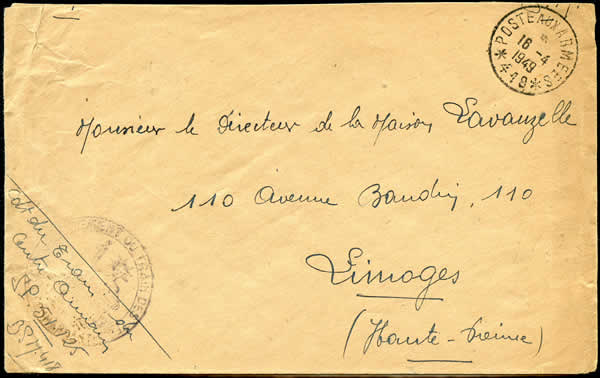 * POSTE AUX ARMEES *
16 -4
1949
449
Monsieur le Directeur de la Maison Lavauzelle
110 Avenue Baudin, 110
Limoges
(Haute-Vienne)
Cdt du Train
Centre
SP
BPM 418